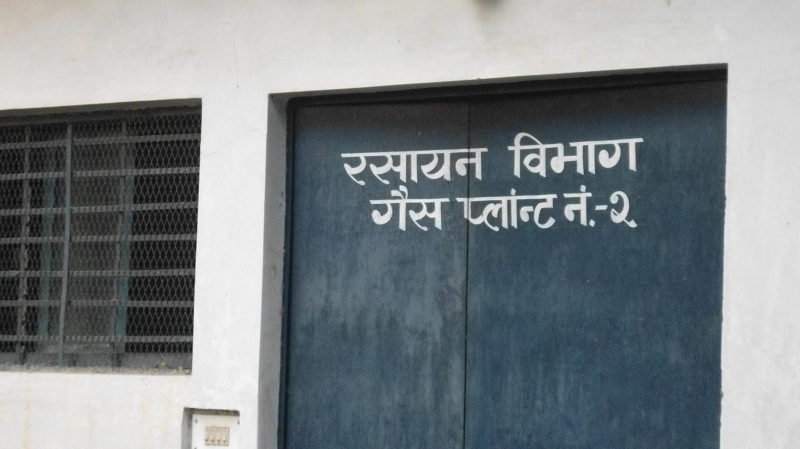 रसायन विभाग
गैस प्लांन्ट नं.-२